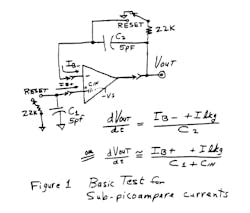 RESET
C2
5pF
22K
IB-
VOUT
CIN
-VS
RESET
IB+
22K
C1
5pF
dVOUT
dt
=
IB- + Ilkg
C2
OR
dVOUT
dt
≅
IB+ + Ilkg
C1 + CIN
Figure 1 Basic Test for
Sub-picoampere currents